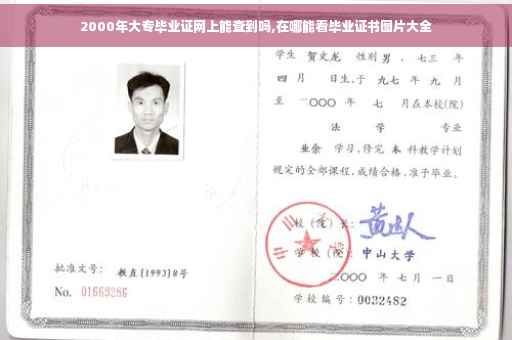 2000年大专毕业证网上能查到吗,在哪能看毕业证书图片大全
学生 贺文龙 性别 男 、七三 年
四 月 日生,于 九七 年 九 月
至 二〇〇〇 年 七 月在本校(院)
法 学 专业
业余 学习,修完 本 科教学计划
规定的全部课程,成绩合格,准予毕业。
校(院)长:
学校(院): 中山大学
二〇〇〇 年 七 月 一 日
批准文号: 教直[1993]8号
No. 01663286
学校编号: 0032482